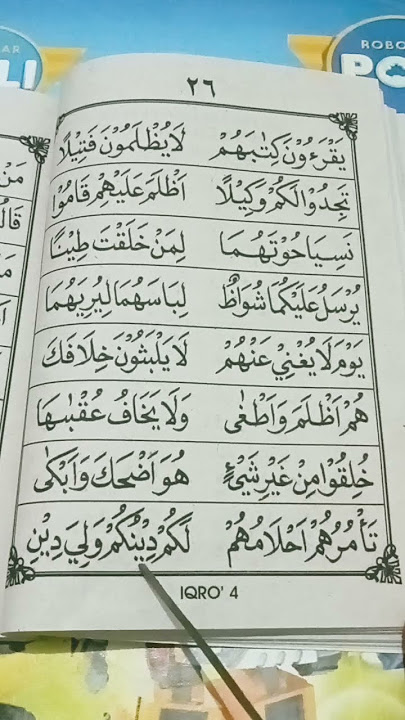 ٢٦
يَقْرَءُوْنَ كِتٰبَهُمْ لَا يُظْلَمُوْنَ فَتِيْلًا
تَجِدُوْا لَكُمْ وَكِيْلًا اَظْلَمَ عَلَيْهِمْ قَامُوْا
نَسِيَا حُوْتَهُمَا لِمَنْ خَلَقْتَ طِيْنًا
يُرْسَلُ عَلَيْكُمَا شُوَاظٌ لِبَاسَهُمَا لِيُرِيَهُمَا
يَوْمَ لَا يُغْنِيْ عَنْهُمْ لَا يَلْبَثُوْنَ خِلَافَكَ
هُمْ اَظْلَمَ وَاَطْغٰى وَلَا يَخَافُ عُقْبٰىهَا
خُلِقُوْا مِنْ غَيْرِ شَيْءٍ هُوَ اَضْحَكَ وَاَبْكٰى
تَأْمُرُهُمْ اَحْلَامُهُمْ لَكُمْ دِيْنُكُمْ وَلِيَ دِيْنِ
IQRO' 4